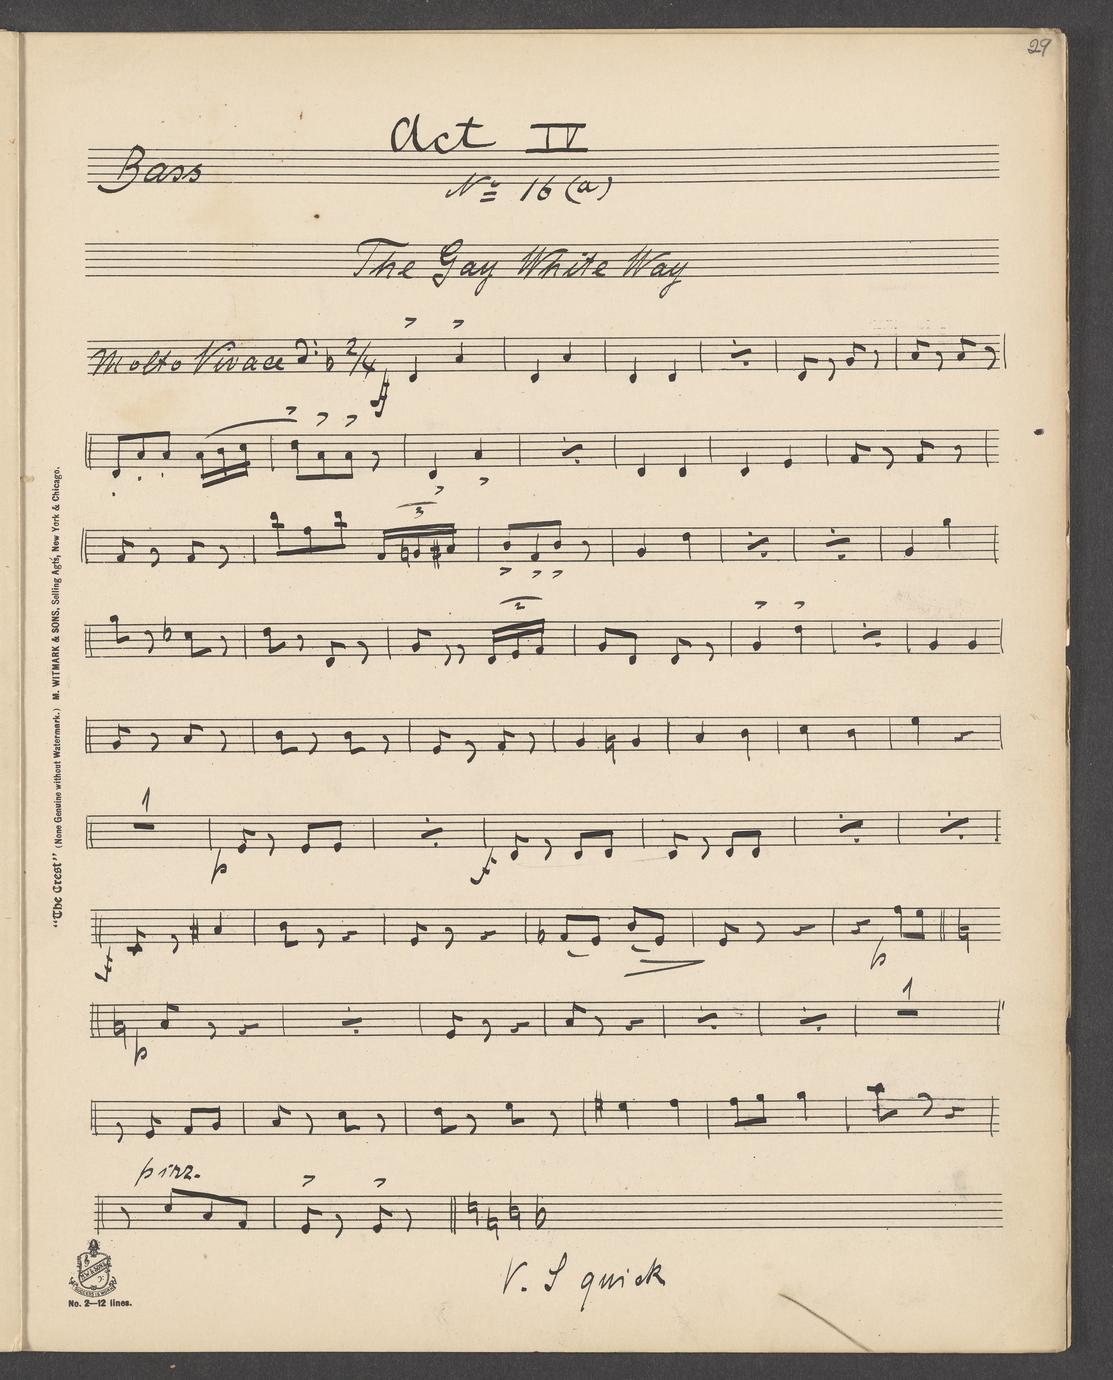 29
Act IV
Bass
No 16 (a)
The Gay White Way
Molto Vivace 2/4
ff
3
2
1
p
f
ff
p
p
1
p
V. S quick
"The Crest" (None Genuine without Watermark.) M. WITMARK & SONS, Selling Agts, New York & Chicago.
No. 2—12 lines.